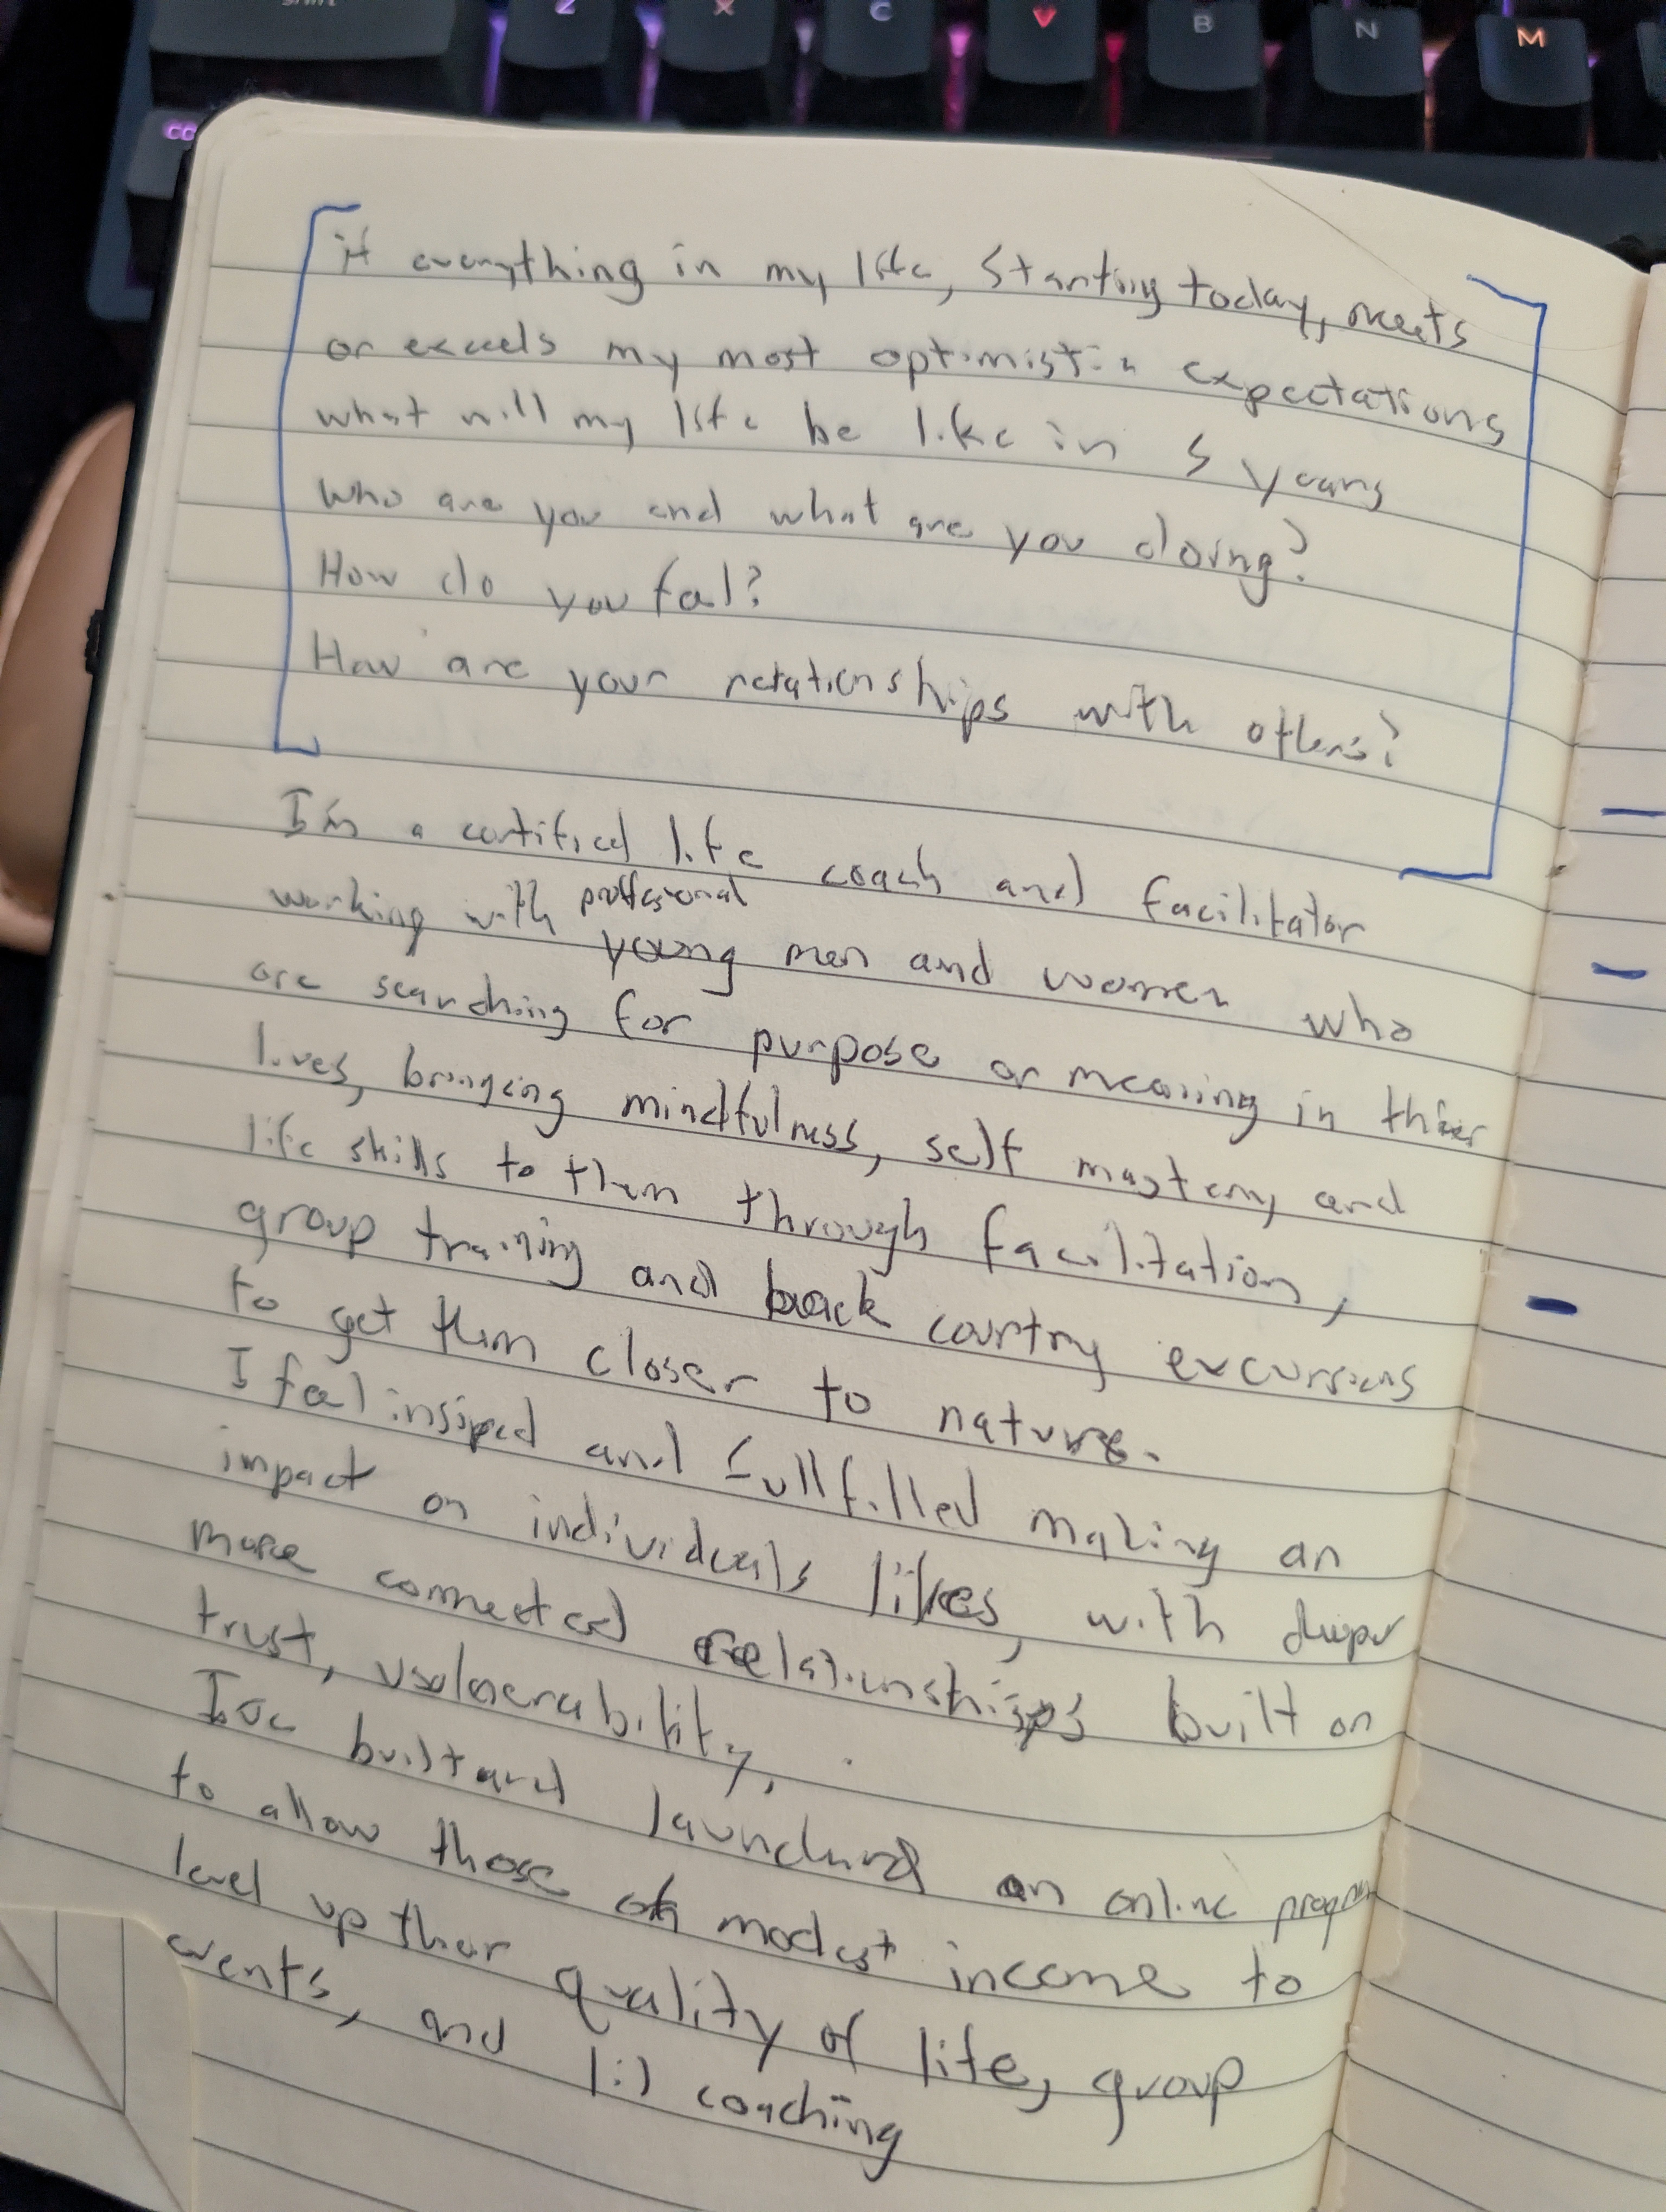 Z X C V B N M
if everything in my life, starting today, meets
or exceeds my most optimistic expectations
what will my life be like in 5 years
who are you and what are you doing?
How do you feel?
How are your relationships with others?
I'm a certified life coach and facilitator
working with proffesional young men and women who
are searching for purpose or meaning in thier
lives, bringing mindfulness, self mastery and
life skills to them through facilitation,
group training and back country excursions
to get them closer to nature.
I feel insipred and fullfilled making an
impact on individuals lives, with deeper
more connected relationships built on
trust, vulnerability.
I've built and launched an online program
to allow those of modest income to
level up their quality of life, group
events, and 1:1 coaching